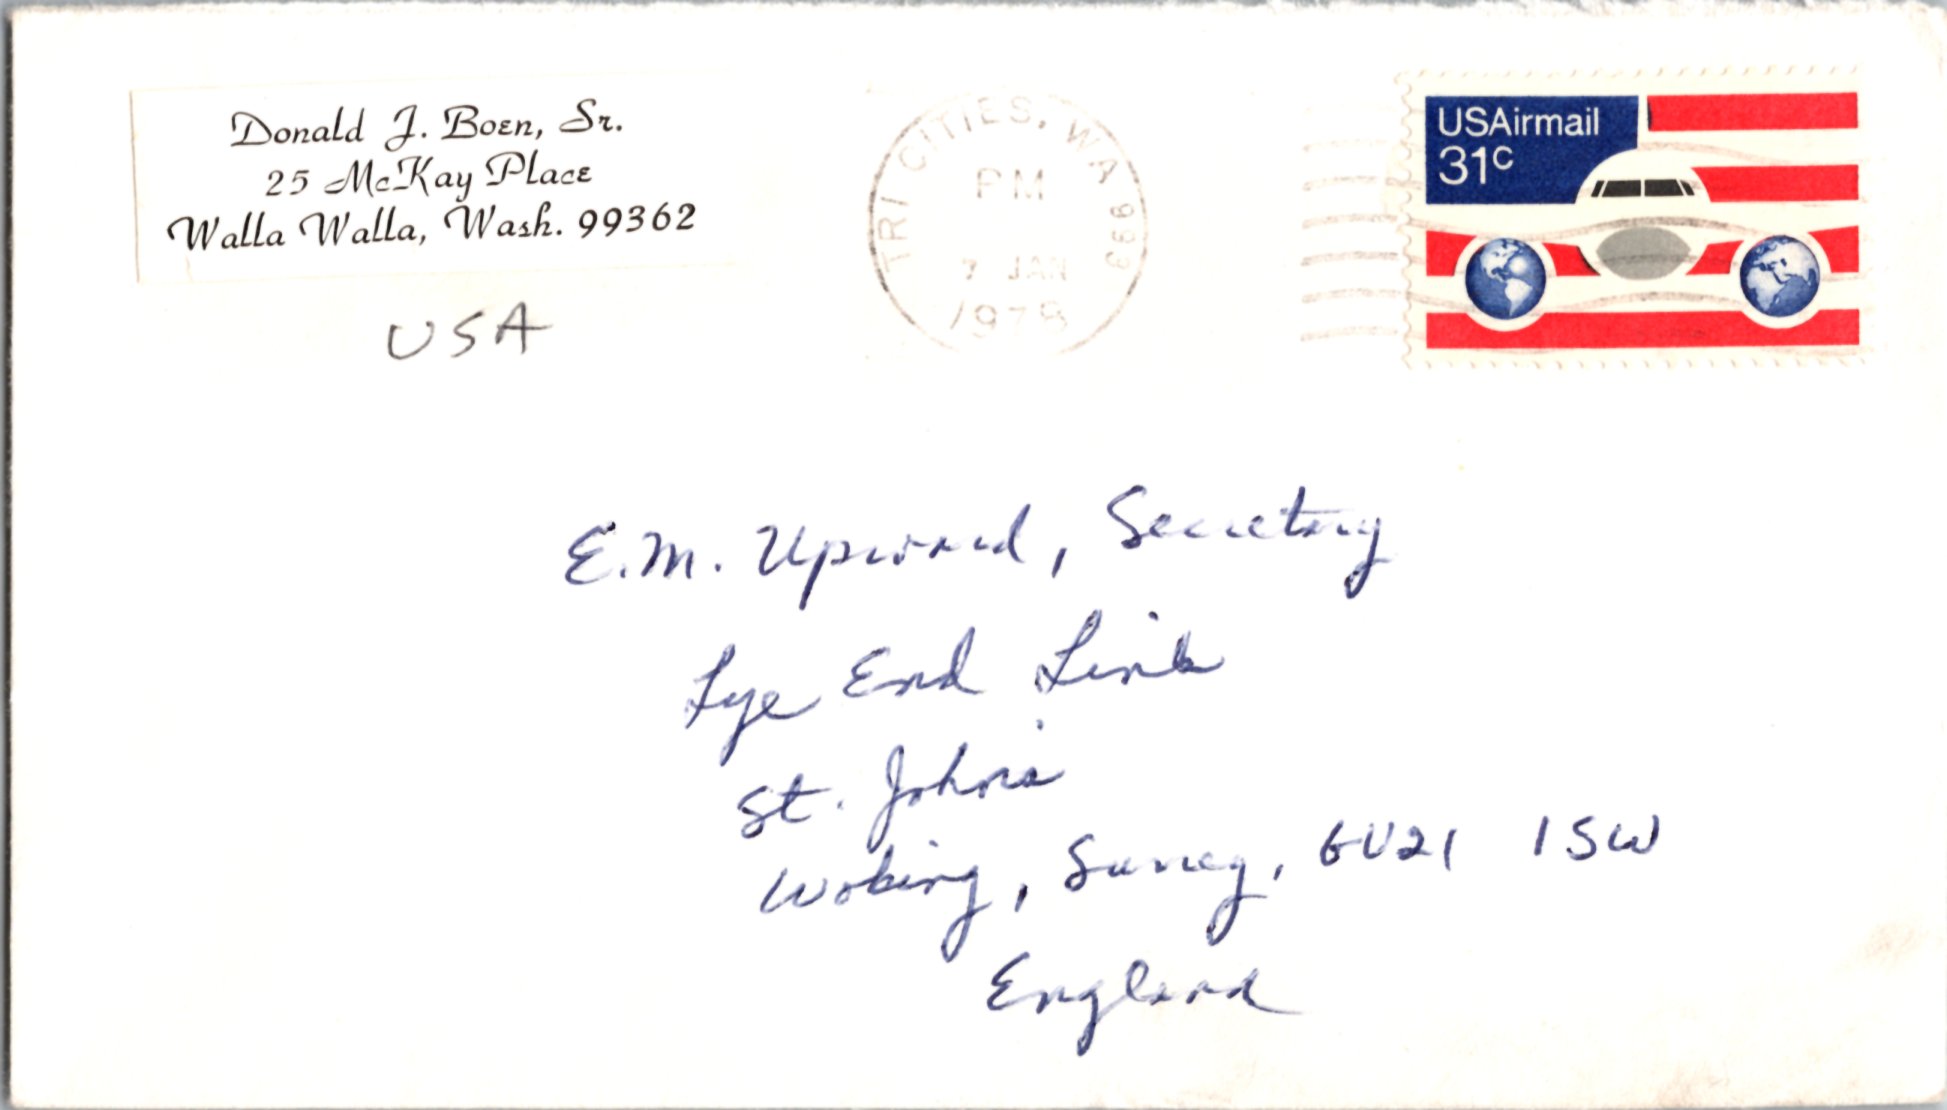 Donald J. Boen, Sr.
25 McKay Place
Walla Walla, Wash. 99362
USA
TRI CITIES, WA 993
PM
7 JAN
1978
USAirmail
31c
E.M. Upward, Secretary
Lye End Link
St. John's
Woking, Surrey, GU21 1SW
England